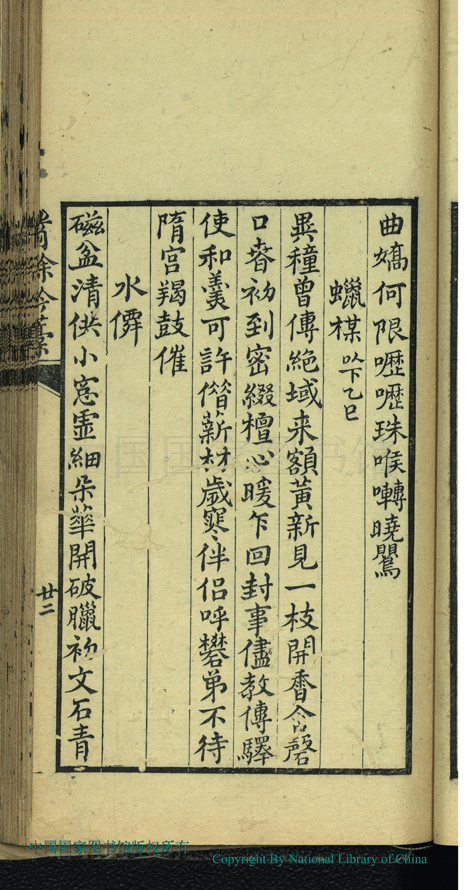 曲嬌何限嚦嚦珠喉囀曉鸎
蠟楳以下乙巳
異種曾傳絶域来額黄新見一枝開香含磬
口春初到密綴檀心暖乍回封事儘教傳驛
使和羹可許僣薪材歲寒伴侣呼礬弟不待
隋宫羯鼓催
水僊
磁盆清供小窓虚細朶華開破臘初文石青
餘
廿二
中国国家图书馆版权所有
Copyright By National Library of China